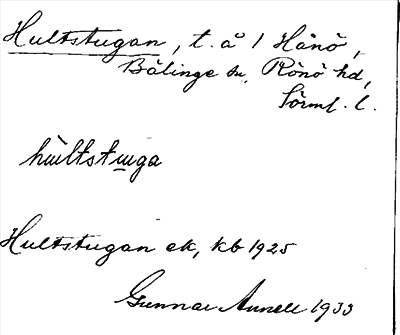 Hultstugan, t. å 1 Hånö,
Bälinge sn, Rönö hd,
Sörml. l.
hultstuga
Hultstugan ek, kb 1925
Gunnar 1933